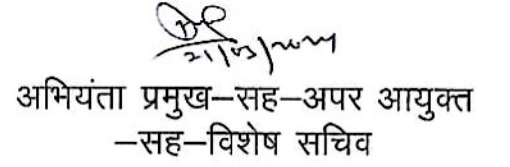 21/03/2024
अभियंता प्रमुख–सह–अपर आयुक्त
–सह–विशेष सचिव